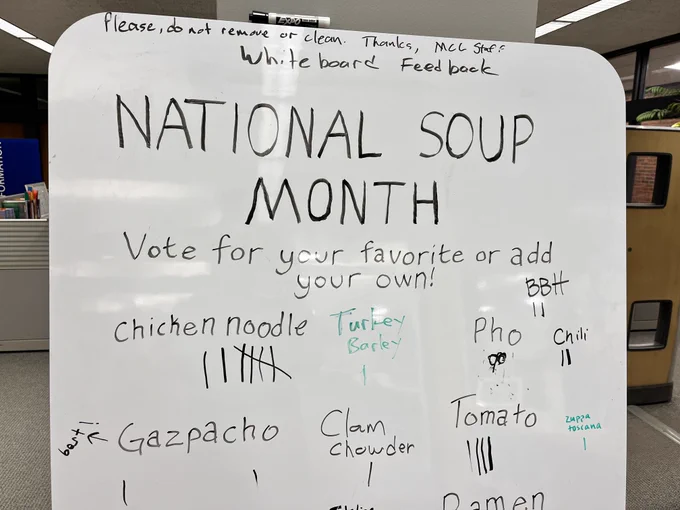 EXPO
Please, do not remove or clean. Thanks, MCL Staff
Whiteboard Feedback
NATIONAL SOUP
MONTH
Vote for your favorite or add
your own!
BBH
chicken noodle
Turkey
Barley
Pho
Chili
best!!
Gazpacho
Clam
chowder
Tomato
zuppa
toscana
Ramen